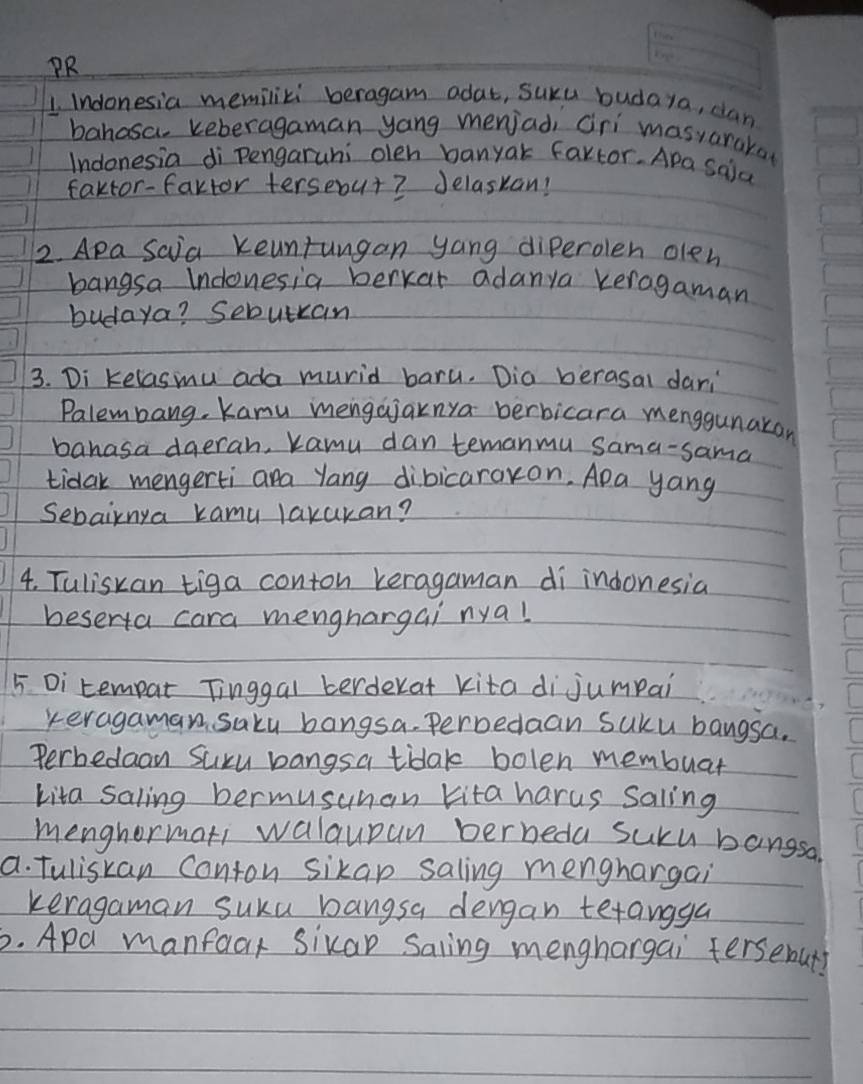 PR
1. Indonesia memiliki beragam adat, suku budaya, dan
bahasa. keberagaman yang menjadi ciri masyarakat
Indonesia di pengaruhi oleh banyak faktor. Apa saja
faktor-faktor tersebut? Jelaskan!
2. Apa saja keuntungan yang diperoleh oleh
bangsa Indonesia berkat adanya keragaman
budaya? Sebutkan
3. Di kelasmu ada murid baru. Dia berasal dari
Palembang. Kamu mengajaknya berbicara menggunakan
bahasa daerah. Kamu dan temanmu sama-sama
tidak mengerti apa yang dibicarakan. Apa yang
Sebaiknya kamu lakukan?
4. Tuliskan tiga contoh keragaman di indonesia
beserta cara menghargai nya!
5. Di tempat Tinggal terdekat kita di jumpai
keragaman suku bangsa. Perbedaan suku bangsa.
Perbedaan suku bangsa tidak boleh membuat
kita saling bermusuhan kita harus saling
menghormati walaupun berbeda suku bangsa.
a. Tuliskan contoh sikap saling menghargai
keragaman suku bangsa dengan tetangga
b. Apa manfaat sikap saling menghargai tersebut?